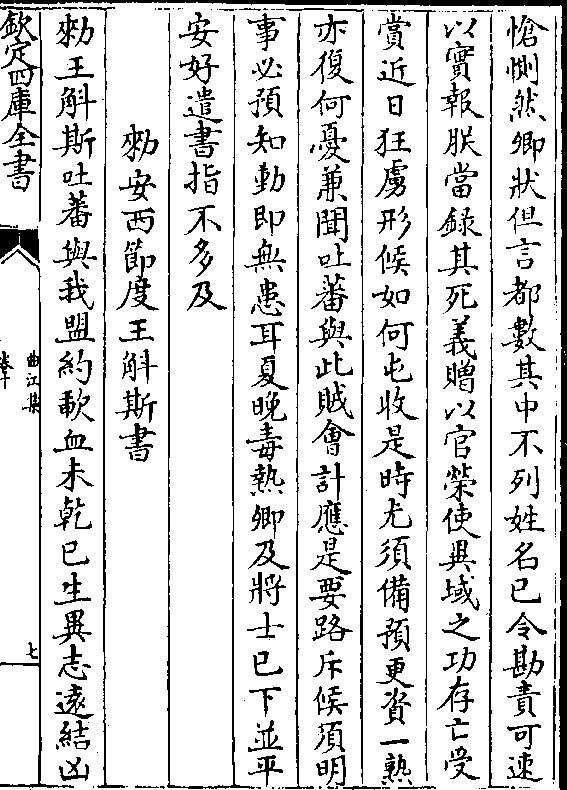 愴惻然卿狀但言都數其中不列姓名已令勘責可速
以實報朕當錄其死義贈以官榮使異域之功存亡受
賞近日狂虜形候如何屯收是時尤須備預更資一熟
亦復何憂兼聞吐蕃與此賊會計應是要路斥候須明
事必預知動即無患耳夏晚毒熱卿及將士已下並平
安好遣書指不多及
勑安西節度王斛斯書
勑王斛斯吐蕃與我盟約歃血未乾已生異志遠結凶
欽定四庫全書
曲江集
卷十
七